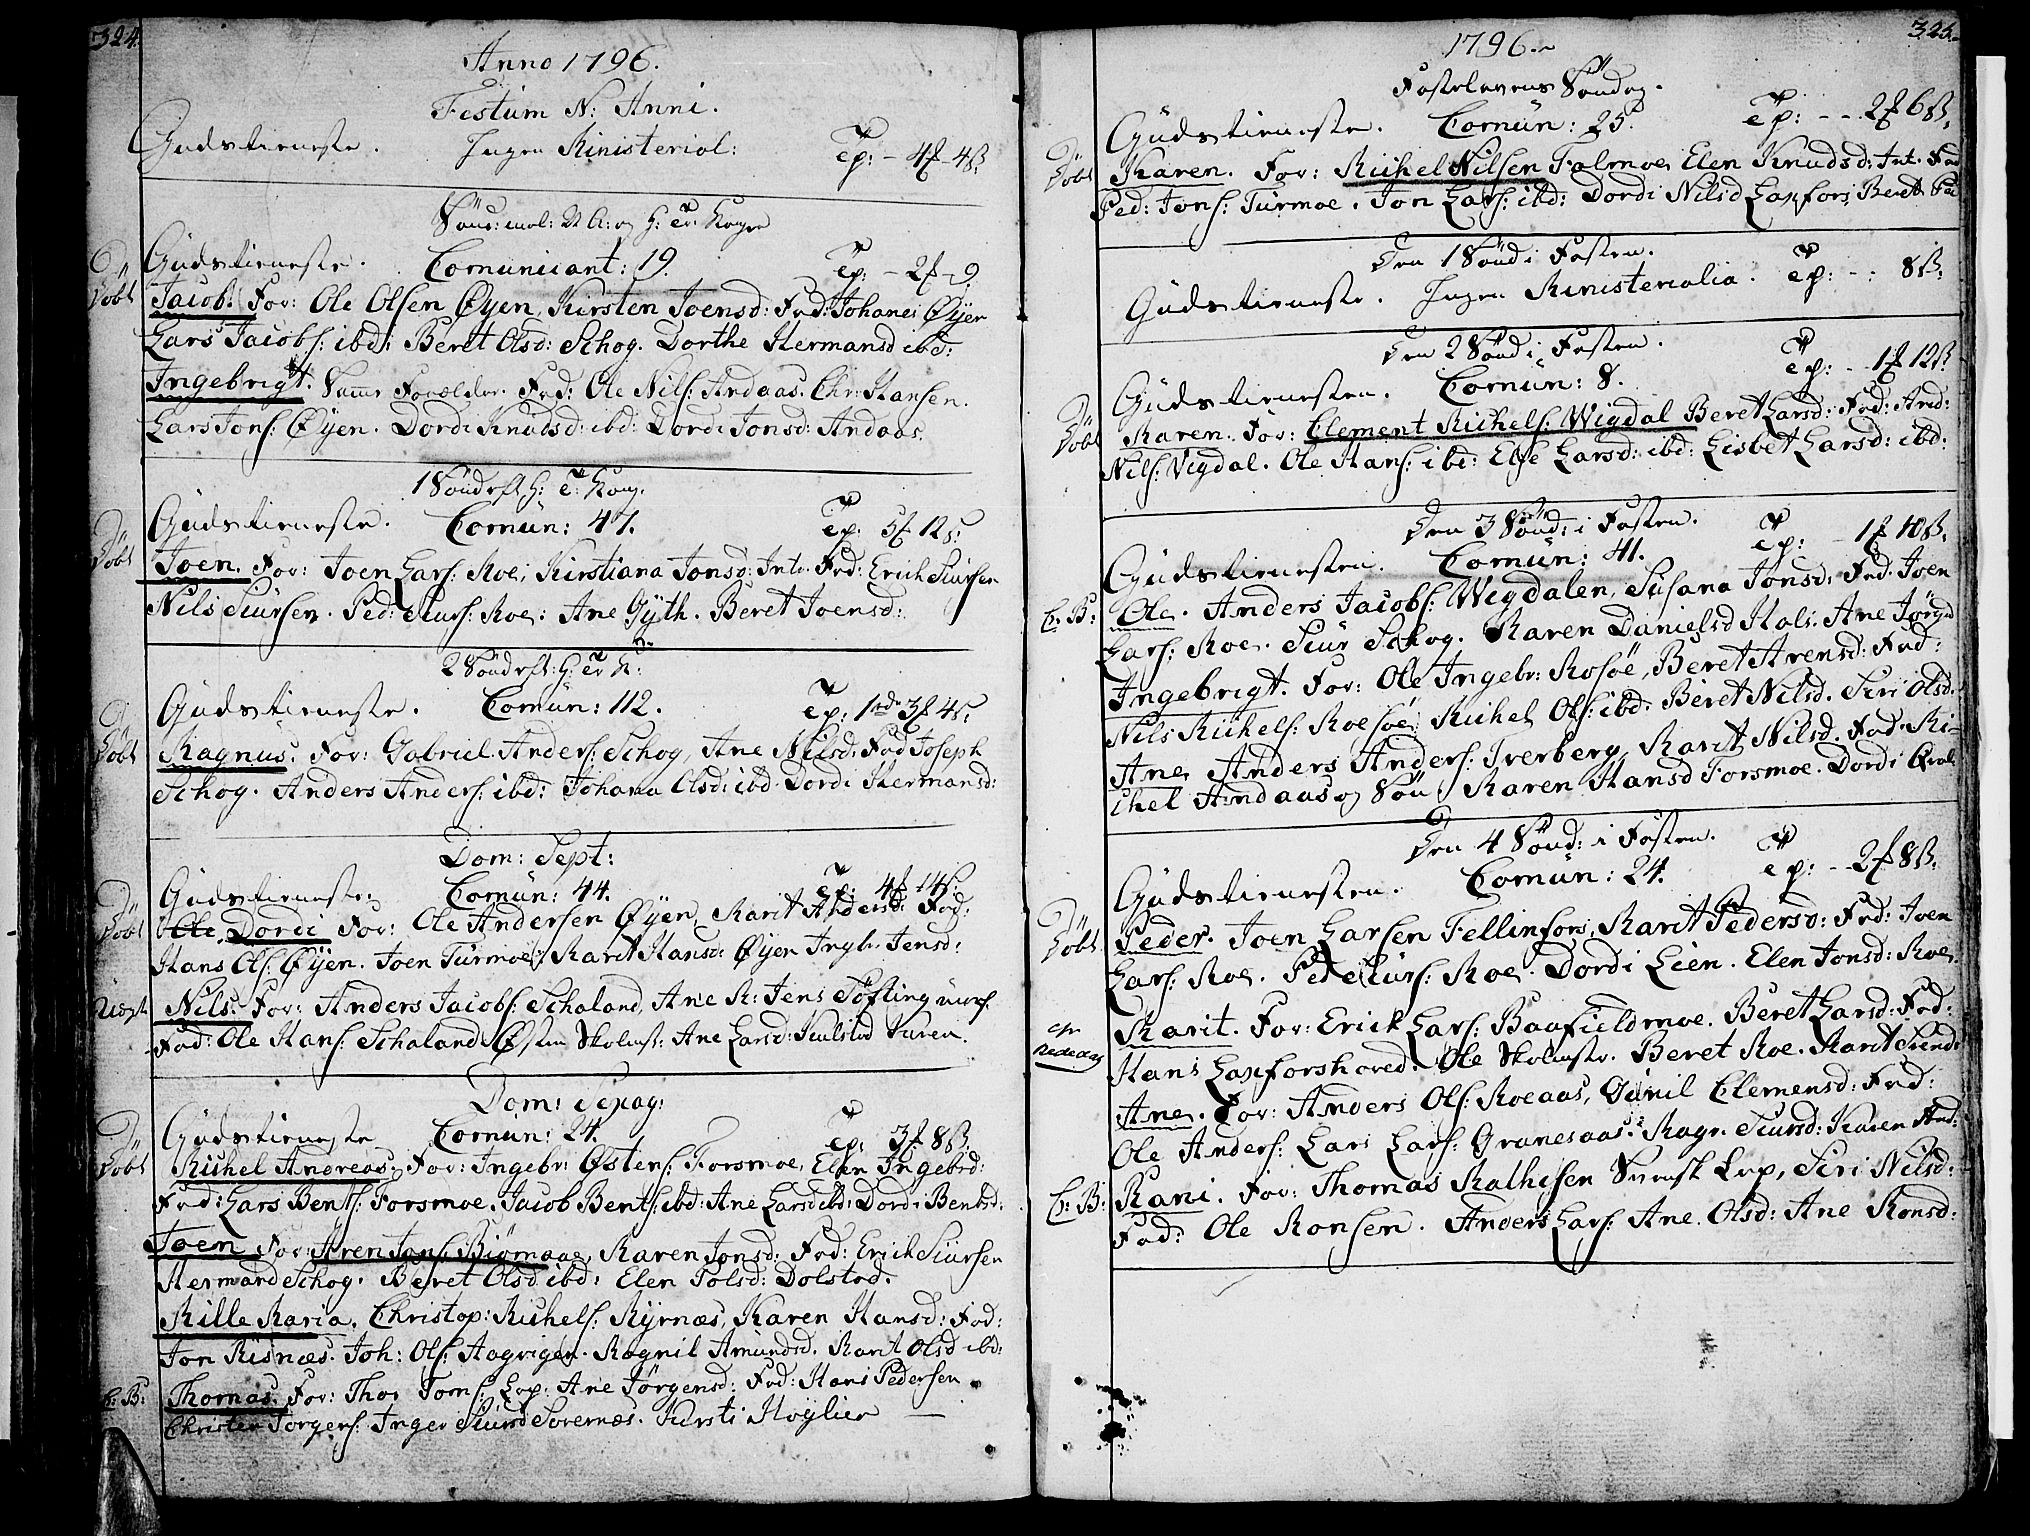 324.
Anno 1796.
Festum N: Anni.
Gudstieneste. Ingen Ministerial: Tp: - 4f - 4ß.
Sönd: mel: N A: og H: 3 Konger
Gudstieneste. Comunicant: 19. Tp: - 2f - 9.
Döbt Jacob. For: Ole Olsen Øyen, Kirsten Joensd: Fad: Johanes Øyen
Lars Jacobs: ibd: Beret Olsd: Schog. Dorthe Hermansd ibd:
Ingebrigt. Samme Forældre. Fad: Ole Nils: Andaas. Chr: Hansen.
Lars Jons: Øyen. Dordi Knudsd: ibd: Dordi Jonsd: Andaas.
1 Sönd eft H: 3 Kong.
Gudstieneste. Comun: 47. Tp: 5f 12ß.
Döbt Joen. For: Joen Lars: Moe, Kirstiana Jonsd: Intr. Fad: Erich Siursen
Nils Siursen. Ped: Siurs: Moe: Ane Gÿth. Beret Joensd:
2 Sönd eft: H: 3 K:
Gudstieneste. Comun: 112. Tp: 1rd 3f 4ß.
Döbt Magnus. For: Gabriel Anders: Schog, Ane Nilsd: Fad Joseph
Schog. Anders Anders: ibd: Johana Olsd: ibd. Dordi Hermansd:
Dom: Sept:
Gudstieneste; Comun: 44. Tp: 4f 14ß.
Döbt Ole, Dordi For: Ole Andersen Øyen, Marit Andersd: Fad:
Hans Ols: Øÿen. Joen Turmoe, Marit Hansd: Øÿen Ingb. Jensd:
Uægte Nils. For: Anders Jacobs: Schaland, Ane M: Jens Søfting
Fad: Ole Hans: Schaland Østen Skolmst: Ane Larsd: Kulstad Karen.
Dom: Sexag:
Gudstieneste Comun: 24. Tp: 3f 8ß.
Döbt Michel Andreas, For: Ingebr: Østens: Forsmoe, Elen Ingebrd:
Fad: Lars Bents: Forsmoe. Jacob Bents: ibd: Ane Larsd ibd: Dordi Bentsd:
Joen For: Aren Jons: Biømaae, Karen Jonsd: Fad: Erich Siursen
Hermand Schog. Beret Olsd ibd: Elen Tolsd: Dolstad.
Mille Maria. Christop: Michels: Myrnæs, Karen Hansd: Fad:
Jon Risnæs. Joh: Ols: Aagvigen. Ragnil Amundsd. Marit Olsd ibd:
C: B: Thomas. For: Thor Toms: Lap: Ane Jørgensd: Fad: Hans Pedersen
Christen Jorgens: Inger Siursd Sorernæs. Kirsti Høglien
325.
1796.
Fastelavens Söndag.
Gudstieneste. Comun: 25. Tp: - - 2f 6ß.
Döbt Karen. For: Michel Nilsen Talmoe, Elen Knudsd: Int. Fad
Ped: Jons: Turmoe. Jon Lars: ibd: Dordi Nilsd Laxfors, Beret
Den 1 Sönd i Fasten.
Gudstieneste. Ingen Ministerialia. Tp: - : 8ß.
Den 2 Sönd i Fasten.
Gudstienesten. Comun: 8. Tp: - - 1f 12ß.
Döbt Maren. For: Clement Michels: Wigdal Beret Larsd: Fad: Arnd:
Nils: Vigdal. Ole Hans: ibd: Else Larsd: ibd: Lisbet Larsd: ibd:
Den 3 Sönd: i Fasten.
Gudstienesten. Comun: 41. Tp: - 1f 10ß.
C: B: Ole. Anders Jacobs: Wigdalen, Susana Jonsd: Fad. Joen
Lars: Moe. Siur Schog. Maren Danielsd Hals: Ane Jørgd
Ingebrigt. For: Ole Ingebr: Mosöe, Beret Arensd: Fad:
Nils Michels: Moesöe, Michel Ols: ibd. Beret Nilsd. Siri Olsd.
Ane, Anders Anders: Tverberg, Marit Nilsd. Fad: Mi-
chel Andaas og Sön, Maren Hansd Forsmoe. Dordi
Den 4 Sönd: i Fasten.
Gudstienesten. Comun: 24. Tp: - - 2f 8ß.
Döbt Peder. Joen Larsen Fellinfors, Marit Pedersd: Fad: Joen
Lars: Moe. Peter Siurs: Moe. Dordi Lien. Elen Jonsd: Moe.
Marit. For: Erick Lars: Baafieldmoe. Beret Larsd: Fad:
Hans Laxforshoved. Ole Skolmstr. Beret Moe. Marit
Ane. For: Anders Ols: Moeaas, Gunil Clemensd: Fad:
Ole Anders: Lars Lars: Granesaas. Magr. Siursd: Karen And:
C: B: Mani. For: Thomas Mathisen Svensk Lap, Siri Nilsd:
Fad: Ole Monsen. Anders Lars: Ane. Olsd: Ane Monsd: